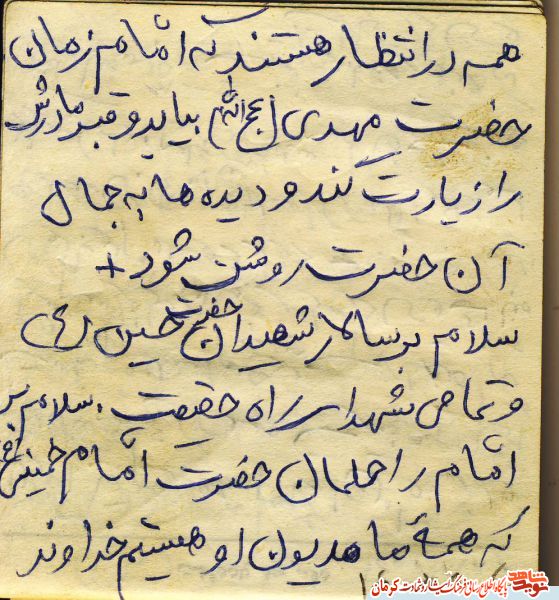 همه در انتظار هستند که امام زمان
حضرت مهدی عج الله بیاید و قبر مادرش
را زیارت کند و دیده ها به جمال
آن حضرت روشن شود +
سلام بر سالار شهیدان حضرت حسین (ع)
و تمامی شهدای راه حقیقت. سلام بر
امام راحلمان حضرت امام خمینی
که همهٔ ما مدیون او هستیم خداوند
نوید شاهد
پایگاه اطلاع رسانی فرهنگ ایثار و شهادت کرمان